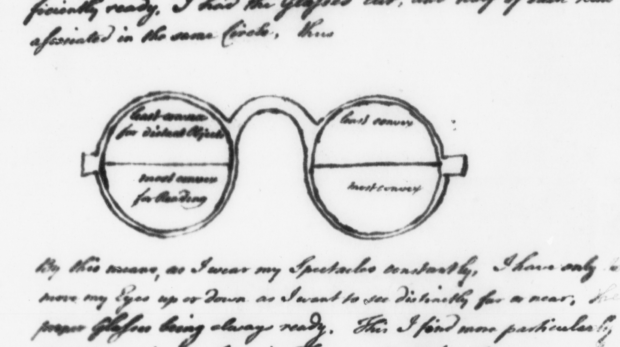 ficiently ready. I had the Glasses cut, and half of each kind
associated in the same Circle, thus
least convex
for distant Objects
most convex
for Reading
least convex
most convex
By this means, as I wear my Spectacles constantly, I have only to
move my Eyes up or down as I want to see distinctly far or near, the
proper Glasses being always ready. This I find more particularly